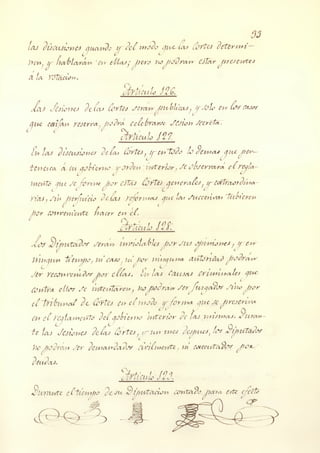 33
las discusiones quando y del modo que las Cortes determi-
nen, y hablarán en ellas; pero no podrán estar presentes
á la votacion.
Artículo 126.
Las Sesiones de las Cortes serán públicas, y solo en los casos
que exijan reserva, podrá celebrarse Sesion secreta.
Artículo 127.
En las discusiones de las Cortes, y en todo lo demas que per-
tenezca á su gobierno y orden interior, se observará el regla-
mento que se forme por estas Cortes generales, y extraordina-
rias, sin perjuicio de las reformas que las Succesivas tubieren
por conveniente hacer en él.
Artículo 128.
Los Diputados serán inviolables por sus opiniones, y en
ningun tiempo, ni caso, ni por ninguna autoridad podrán
ser reconvenidos por ellas. En las causas criminales que
contra ellos se intentaren, no podrán ser juzgados sino por
el tribunal de Cortes en el modo y forma que se prescriva
en el reglamento del gobierno interior de las mismas. Duran-
te las Sesiones de las Cortes, y un mes despues, los Diputados
no podrán ser demandados civilmente, ni executados por
deudas.
Artículo 129.
Durante el tiempo de su Diputacion contado para este efecto